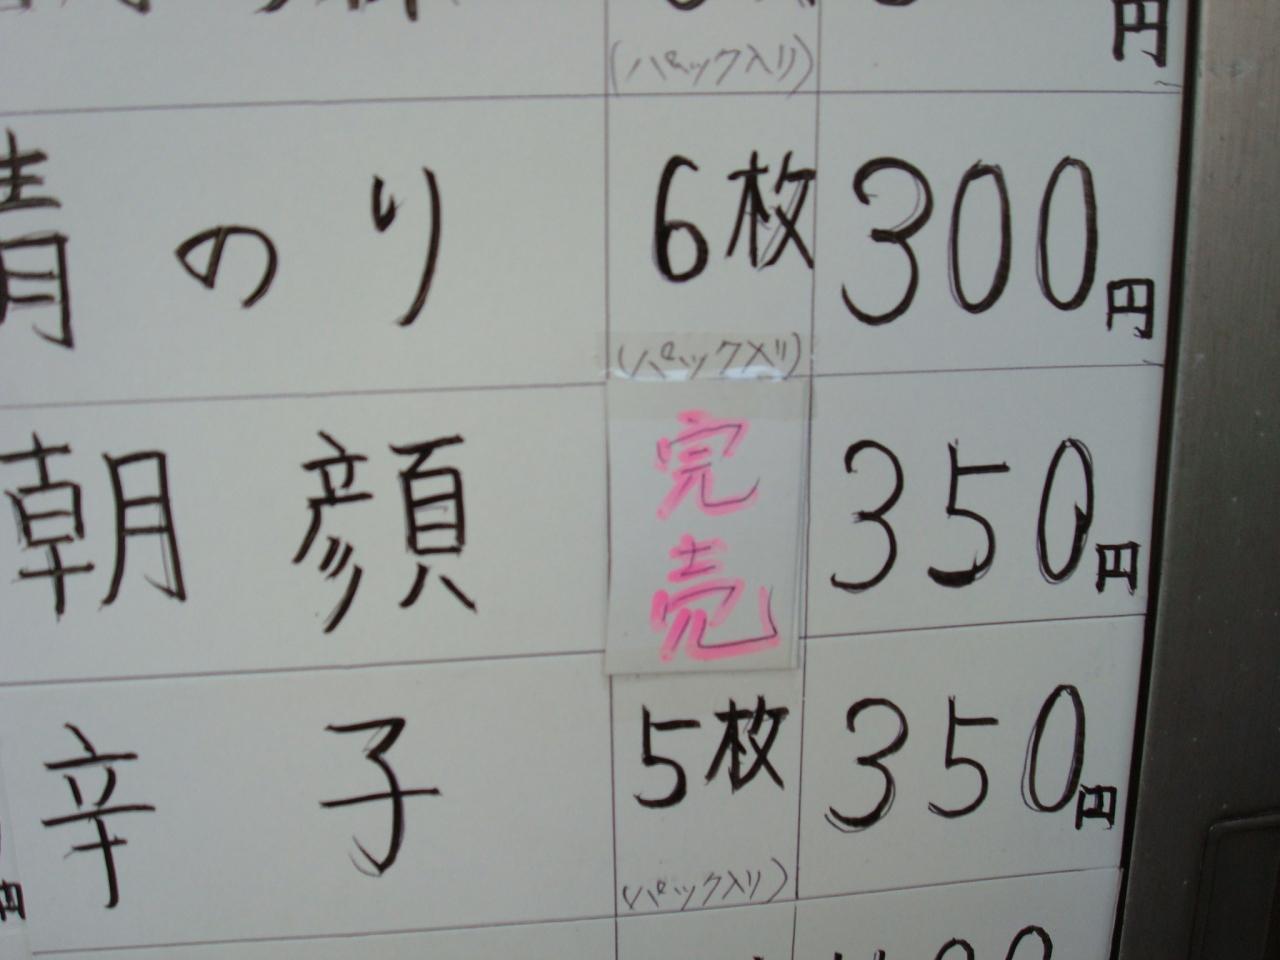 円
(パック入り)
青のり 6枚 300円
(パック入り)
朝顔 完売 350円
辛子 5枚 350円
(パック入り)